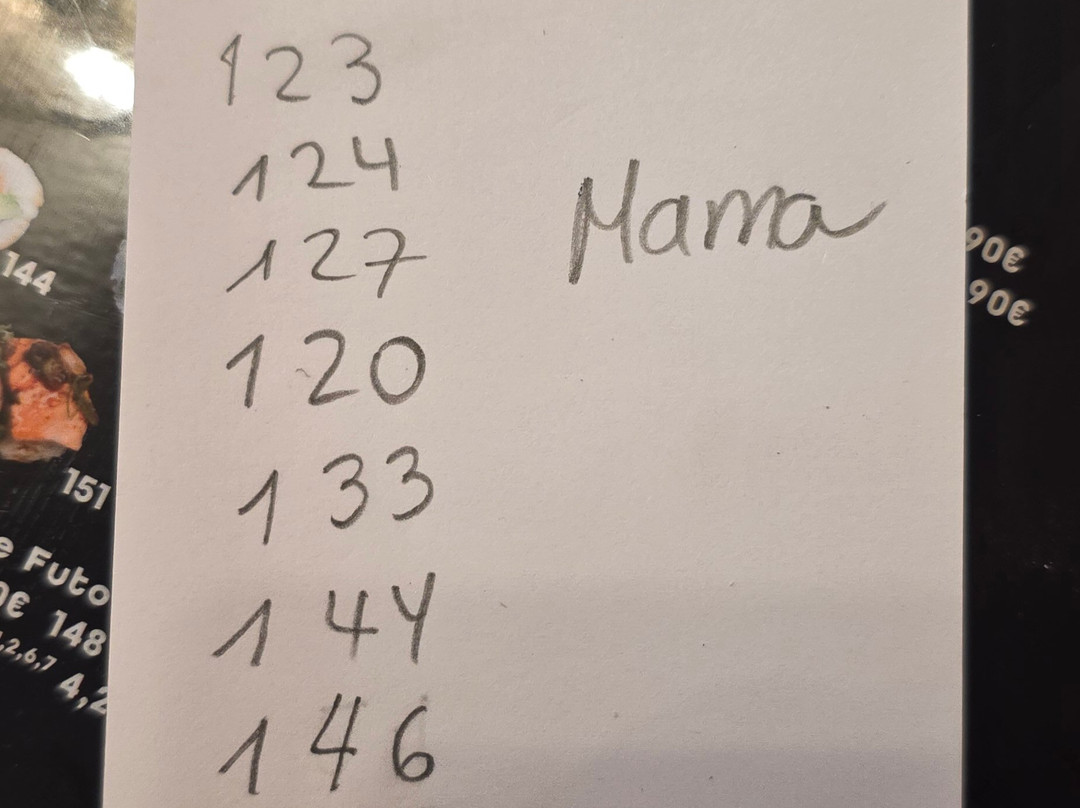 123
124
127
120
133
144
146
Mama
144
151
e Futo
0€ 148
,2,6,7
4,2
90€
90€